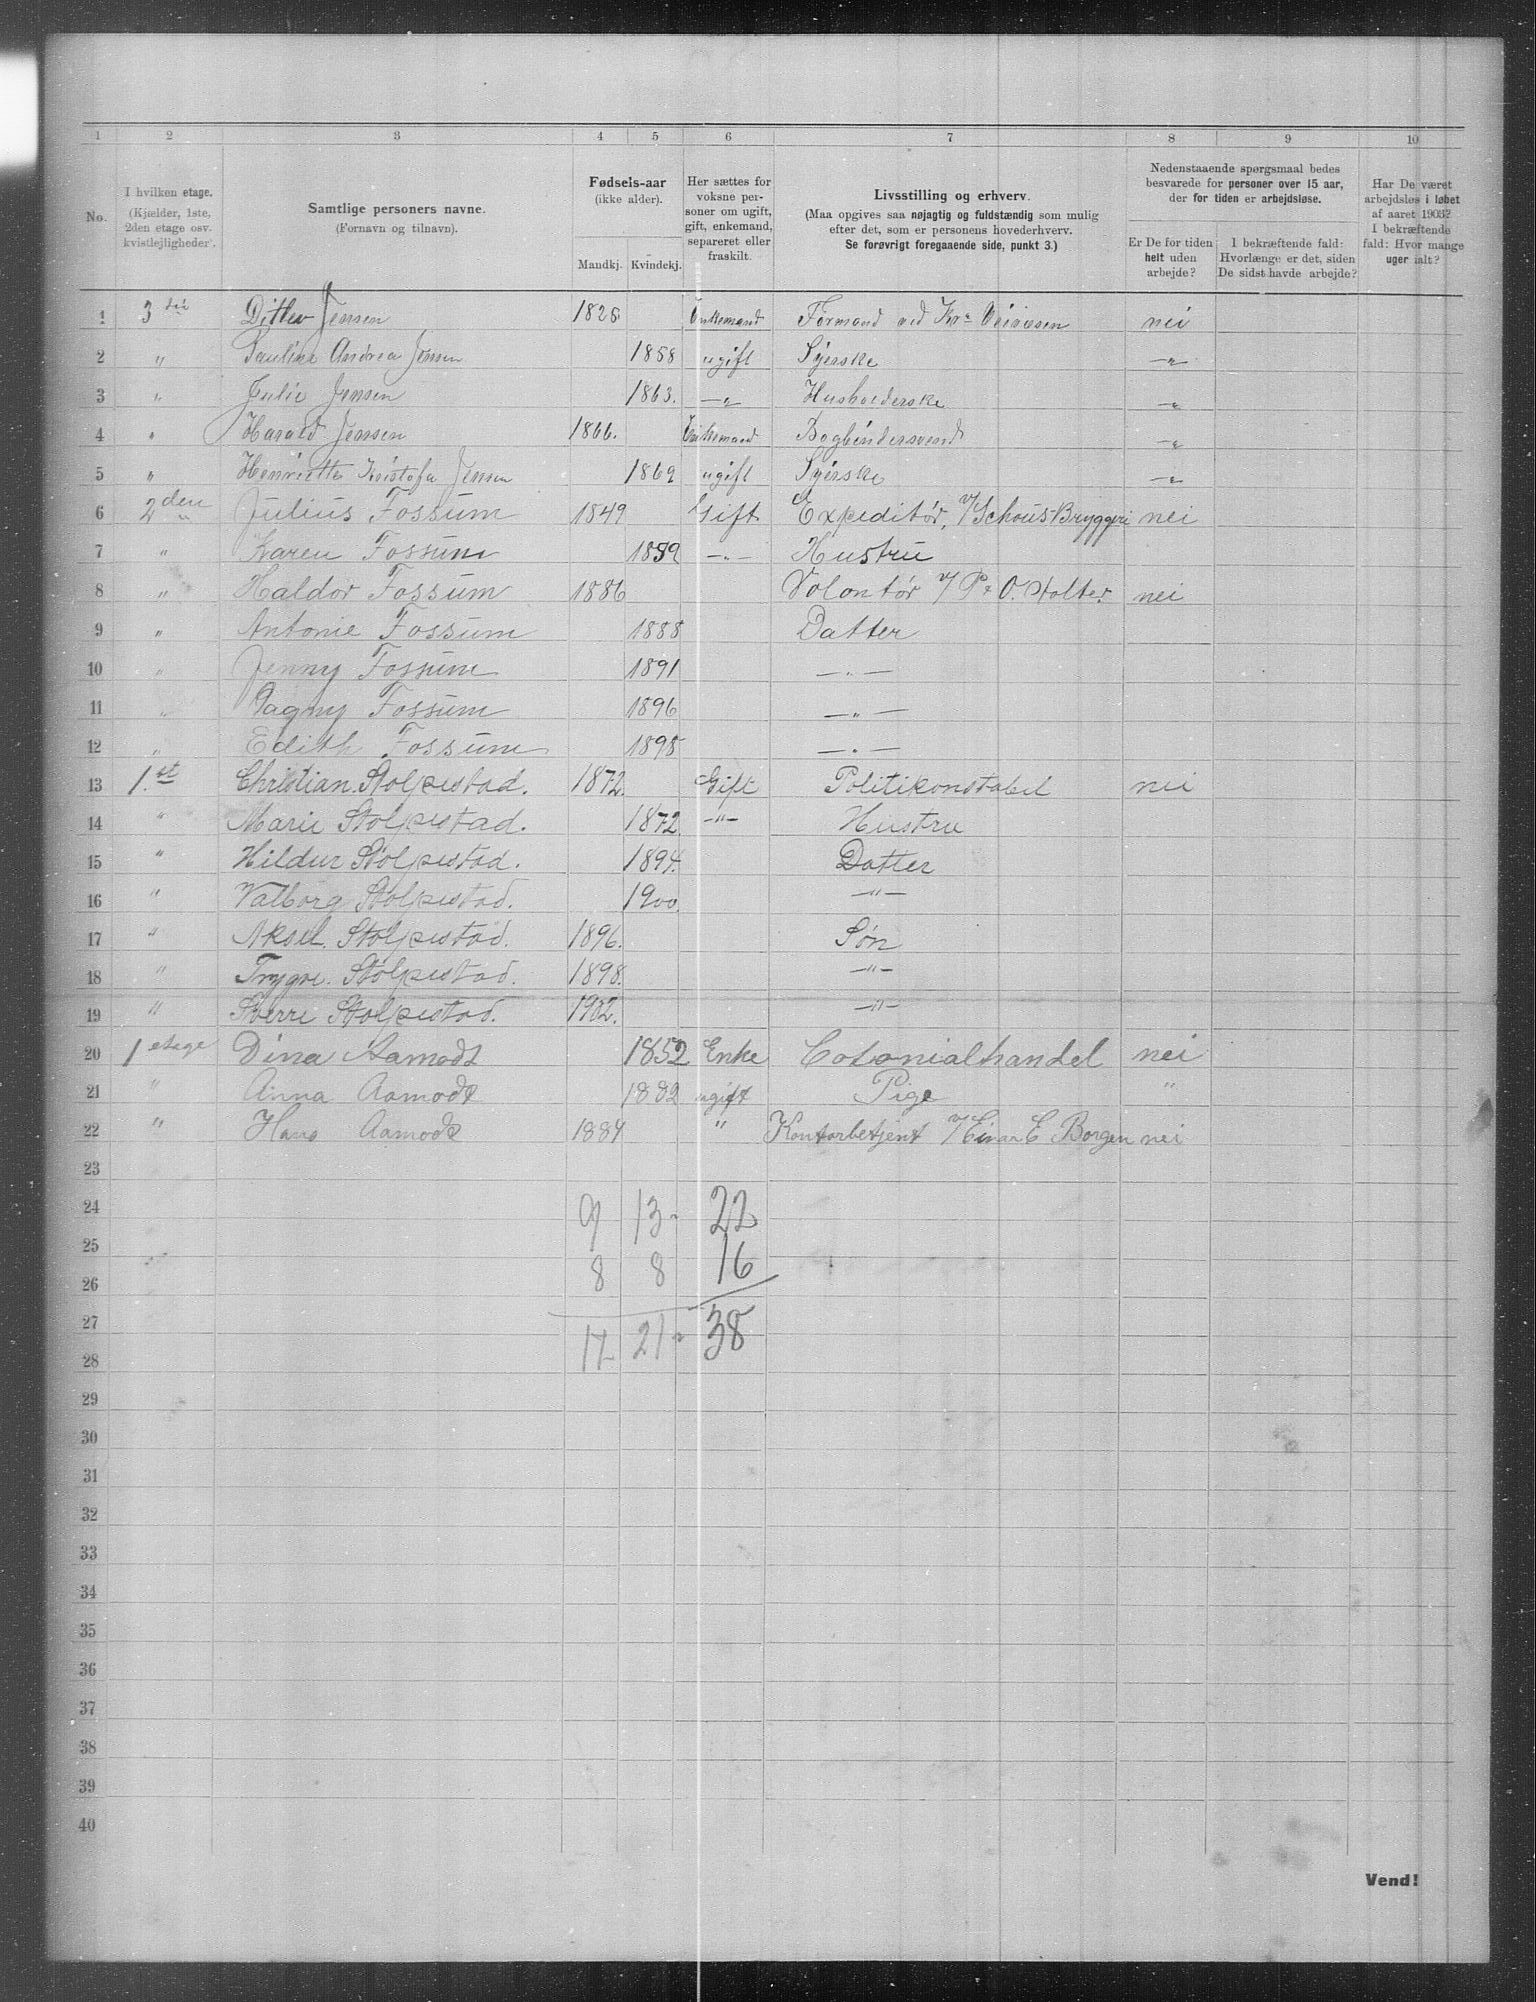 1 2 3 4 5 6 7 8 9 10
No.
I hvilken etage. (Kjælder, 1ste, 2den etage osv. kvistlejligheder).
Samtlige personers navne. (Fornavn og tilnavn).
Fødsels-aar (ikke alder).
Mandkj. Kvindekj.
Her sættes for voksne personer om ugift, gift, enkemand, separeret eller fraskilt.
Livsstilling og erhverv.
(Maa opgives saa nøjagtig og fuldstændig som mulig efter det, som er personens hovederhverv.
Se forøvrigt foregaaende side, punkt 3.)
Nedenstaaende spørgsmaal bedes besvarede for personer over 15 aar, der for tiden er arbejdsløse.
Er De for tiden helt uden arbejde?
I bekræftende fald: Hvorlænge er det, siden De sidst havde arbejde?
Har De været arbejdsløs i løbet af aaret 1903? I bekræftende fald: Hvor mange uger ialt?
1 3die Ditlev Jensen 1826 Enkemand Formand ved Kr. nei
2 " Pauline Andrea Jensen 1858 ugift Syerske -"-
3 " Julie Jensen 1863. -"- Husholderske -"-
4 " Harald Jensen 1866. Enkemand Bogbindersvend -"-
5 " Henriette Kristofa Jensen 1869 ugift Syerske -"-
6 2den " Julius Fossum 1849 Gift Expeditør, v/Schous Bryggeri nei
7 " Karen Fossum 1859 -"- Hustru
8 " Haldor Fossum 1886 Volontør v/ P. O. Holter nei
9 " Antonie Fossum 1888 Datter
10 " Jenny Fossum 1891 -"-
11 " Dagny Fossum 1896 -"-
12 " Edith Fossum 1898 -"-
13 1.st Christian Stolpestad. 1872. Gift Politikonstabel nei
14 " Marie Stolpestad. 1872. -"- Hustru
15 " Hildur Stolpestad. 1894. Datter
16 " Valborg Stolpestad. 1900. -"-
17 " Aksel Stolpestad. 1896. Søn
18 " Trygve Stolpestad. 1898. -"-
19 " Sverre Stolpestad. 1902. -"-
20 1 etage Dina Aamodt 1852 Enke Colonialhandel nei
21 " Anna Aamodt 1882 ugift Pige "
22 " Hans Aamodt 1884 " Kontorbetjent v/Einar E Borgen nei
23
24 9 13 - 22
25
26 8 8 16
27
28 17 21 - 38
29
30
31
32
33
34
35
36
37
38
39
40
Vend!